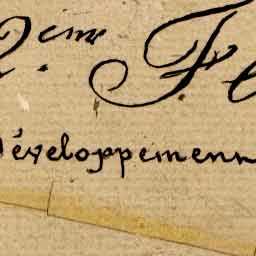 2.ème Fe
Développemenn